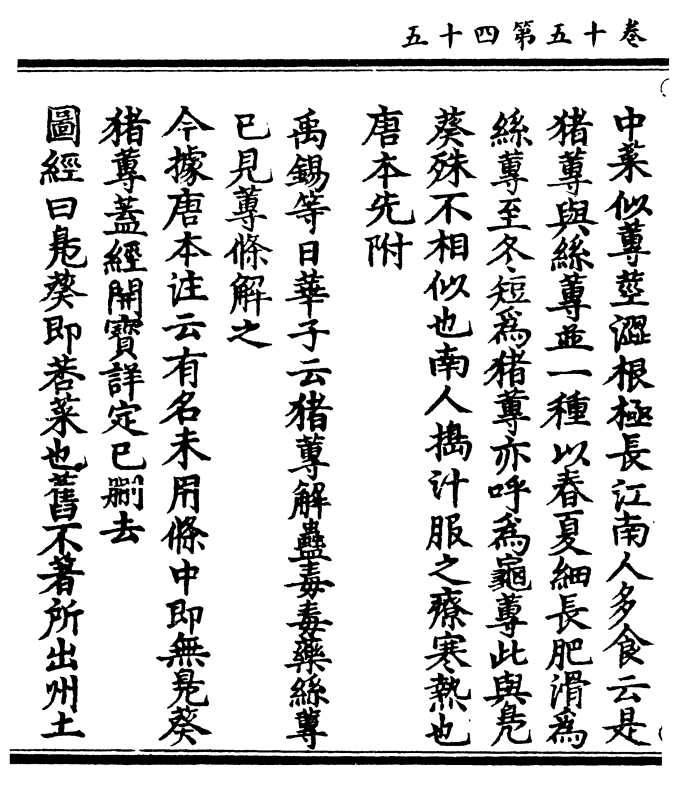 卷十五第四十五
中菜似蓴莖澀根極長江南人多食云是
猪蓴與絲蓴並一種以春夏細長肥滑為
絲蓴至冬短為猪蓴亦呼為龜蓴此與鳧
葵殊不相似也南人擣汁服之療寒熱也
唐本先附
禹錫等日華子云猪蓴解蠱毒毒藥絲蓴
已見蓴條解之
今據唐本注云有名未用條中即無鳧葵
猪蓴蓋經開寶詳定已刪去
圖經曰鳧葵即莕菜也舊不著所出州土